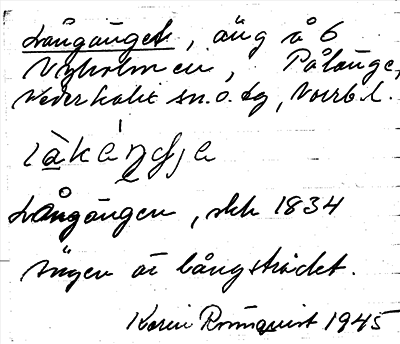 Långänget, äng å 6
Nyholmen, Pålänge,
Nederkalix sn. o. tg, Norrb. l.
Långängen, 1834
ängen är långsträckt.
Karin Rönnquist 1945